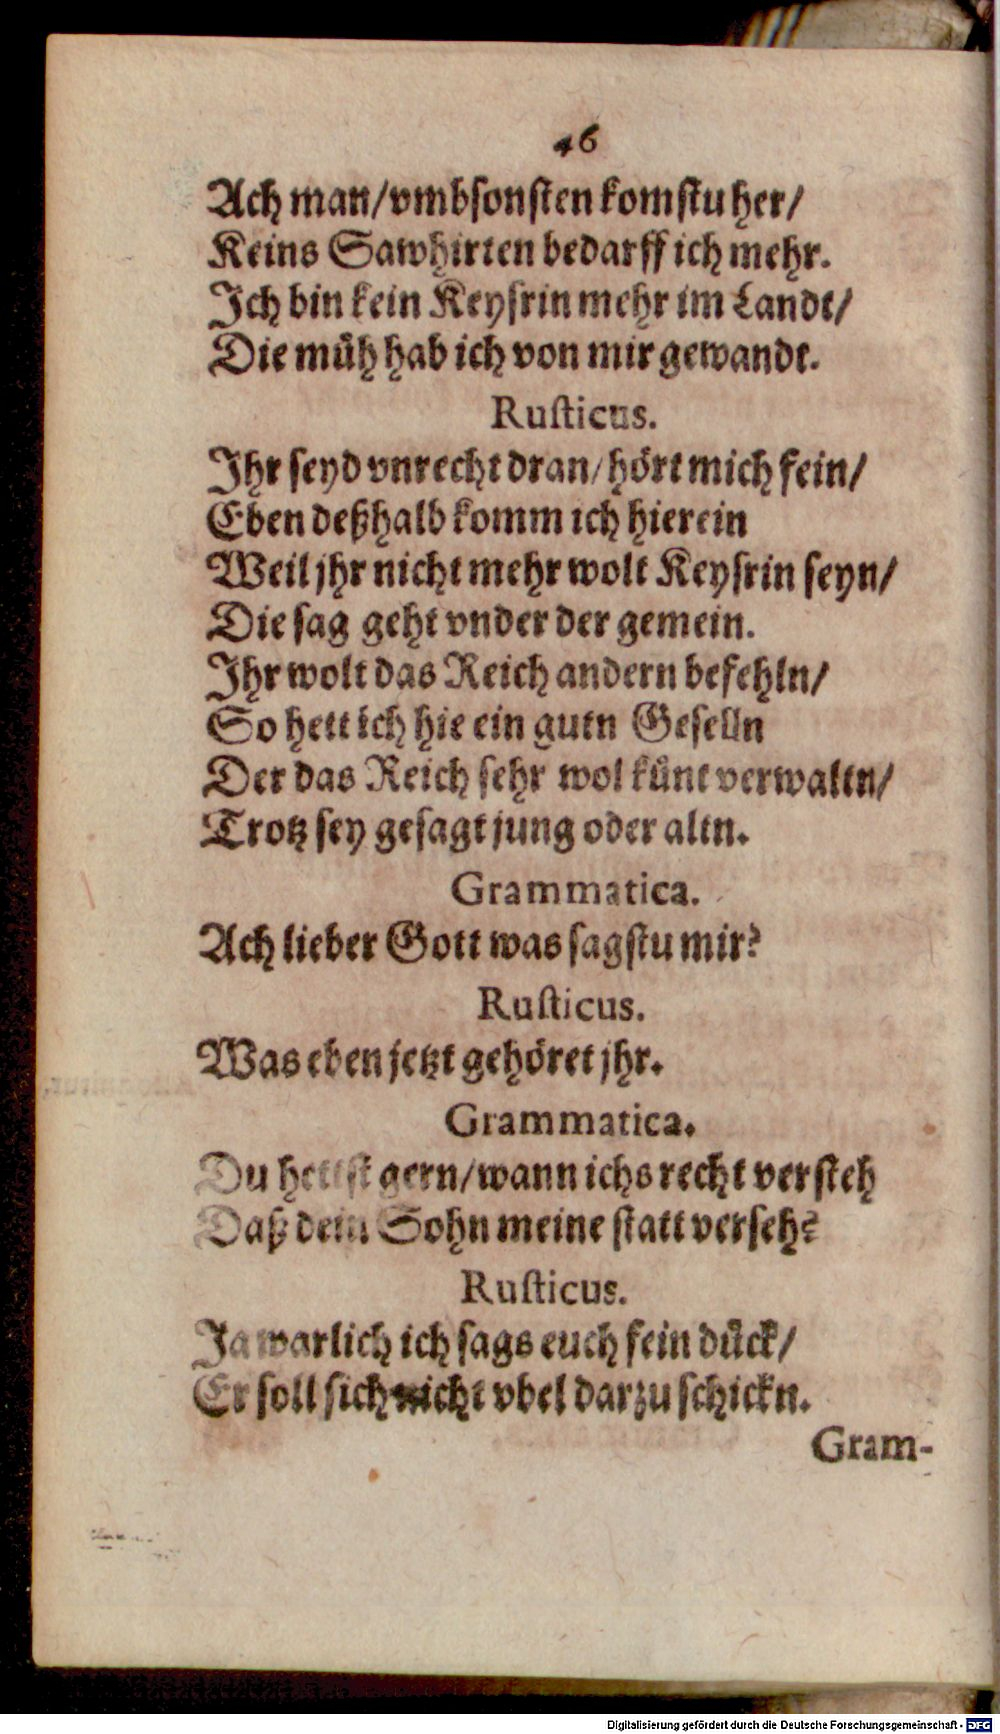 46
Ach man/vmbsonsten komstu her/
Keins Sawhirten bedarff ich mehr.
Ich bin kein Keysrin mehr im Landt/
Die müh hab ich von mir gewandt.
Rusticus.
Ihr seyd vnrecht dran/hört mich fein/
Eben deßhalb komm ich hierein
Weil jhr nicht mehr wolt Keysrin seyn/
Die sag geht vnder der gemein.
Ihr wolt das Reich andern befehln/
So hett ich hie ein gutn Geselln
Der das Reich sehr wol künt verwaltn/
Trotz sey gesagt jung oder altn.
Grammatica.
Ach lieber Gott was sagstu mir?
Rusticus.
Was eben jetzt gehöret jhr.
Grammatica.
Du hettst gern/wann ichs recht versteh
Daß dein Sohn meine statt verseh?
Rusticus.
Ja warlich ich sags euch fein dück/
Er soll sich nicht vbel darzu schickn.
Gram-
Digitalisierung gefördert durch die Deutsche Forschungsgemeinschaft - DFG